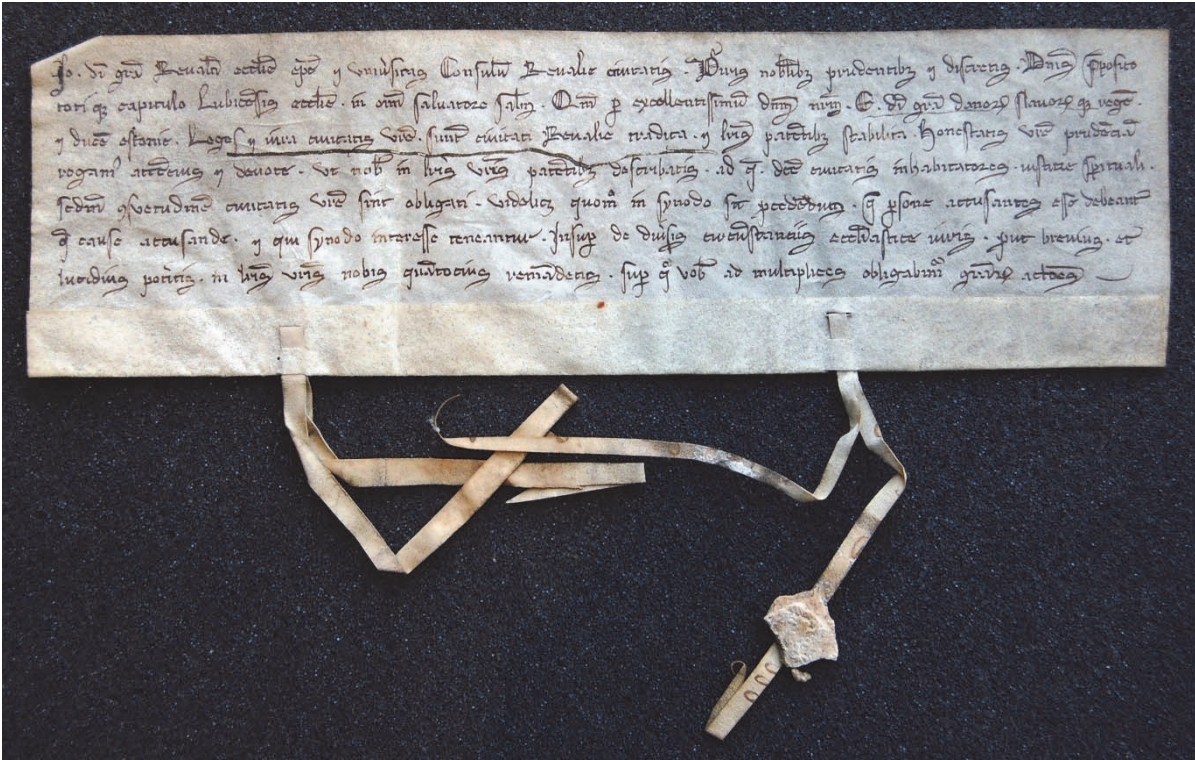 Jo. dī grā Revalīn ecclīe ep̄c ⁊ univ̄sitas Consulū Revalie civitatis. Viris nobīlibꝫ prudentibꝫ ⁊ discretis. Dn̄is p̄posito
toti qꝫ capitulo Lubicen̄sis ecclīe. in om̄i salvatore sal̄m. Qm̄ ꝑ excellentissimū dn̄m nr̄m. E. dī grā danorꝝ slavorꝝ qꝫ regē.
⁊ ducē estonie. Leges ⁊ iura civitatis vr̄e. sunt civitati Revalie tradita. ⁊ lr̄is patētibꝫ stabilita. Honestatis vr̄e prudēciā
rogamꝰ attēcius ⁊ devote. ut nob̄ in lr̄is vr̄is patētibꝫ describatis. ad q̄. dc̄e civitatis inhabitatores. iusticie sp̄irituali.
sedm̄ ꝯsuetudinē civitatis vr̄e sint obligati. videlicꝫ quomͦ in synodo sit ꝓcedēdum. q̄ ꝑsone accusantes esse debeant
q̄ cause accusande. ⁊ qui synodo interesse teneantur. Insuꝑ de div̄sis circūstanciis eccl̄iastici iuris. ꝓut brevius. et
lucidius pot̄itis. in lr̄is vr̄is nobis quātocius remādetis. suꝑ qͦ vob̄ ad multiplices obligabim̄ grāꝝ actōes